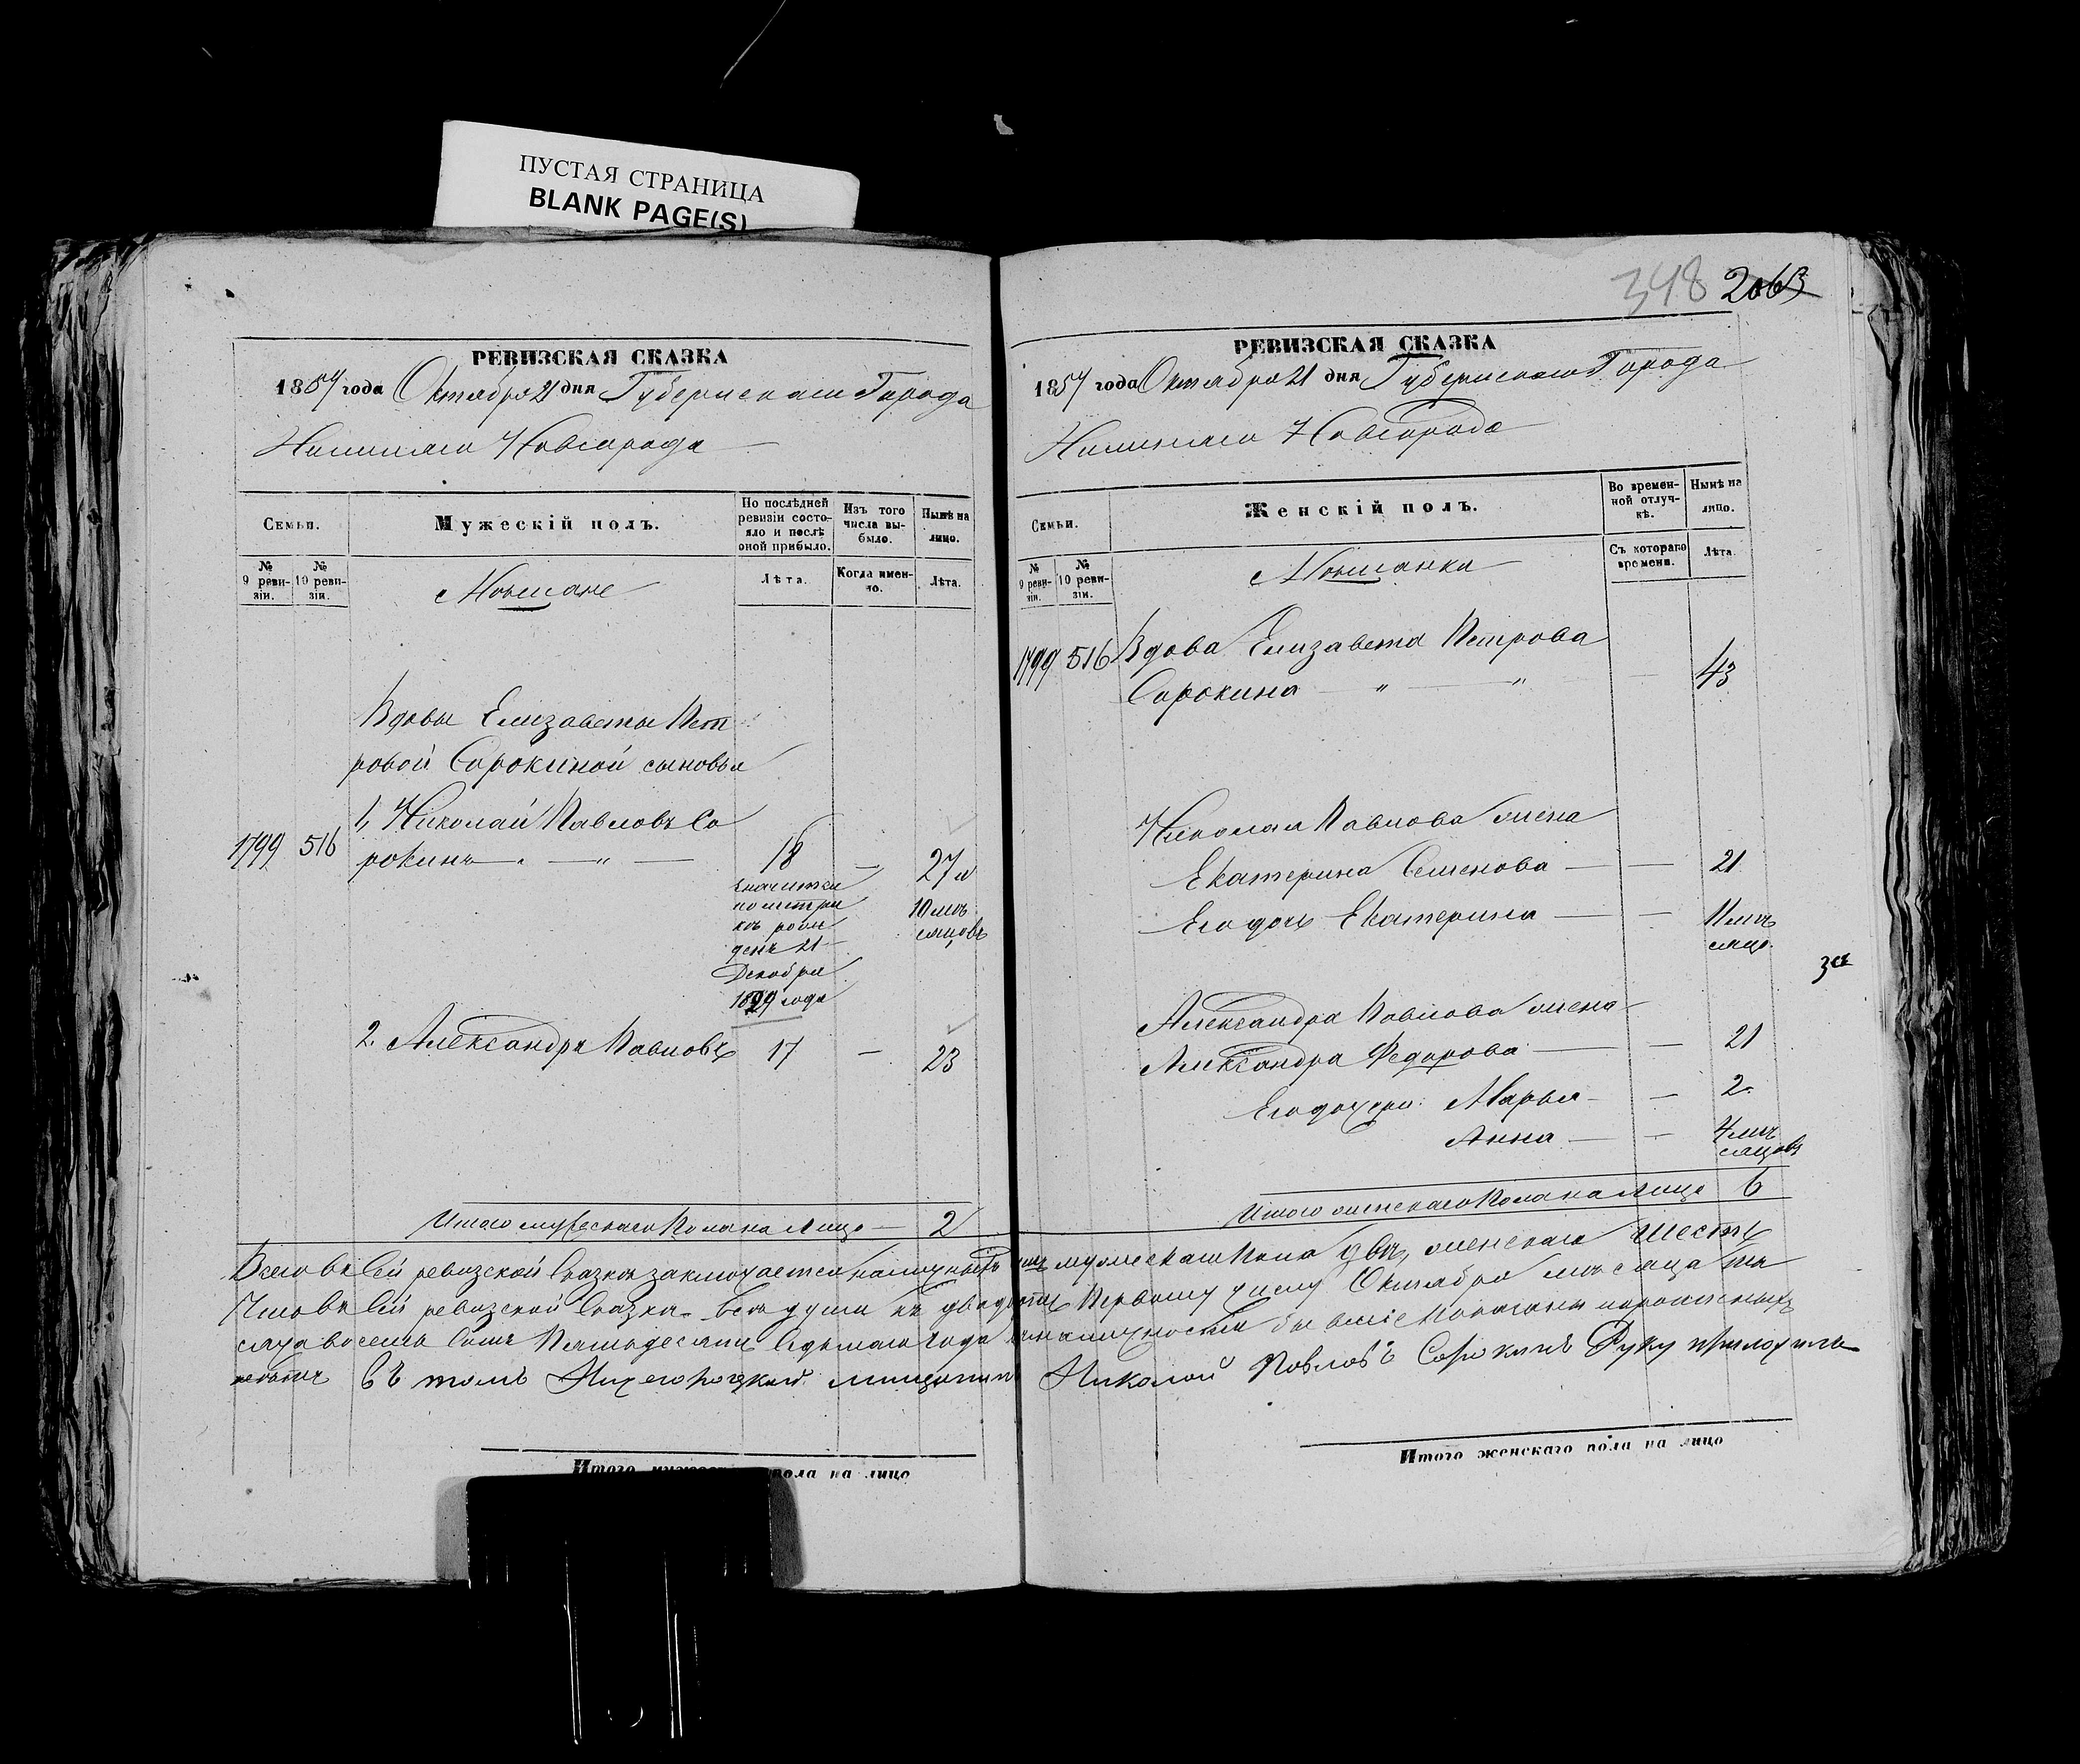 ПУСТАЯ СТРАНИЦА
BLANK PAGE(S)
РЕВИЗСКАЯ СКАЗКА
1857 года Октября 21 дня Губернскаго Города
Нижняго Новгорода
Семьи.
Мужескій полъ.
По послѣдней ревизіи состояло и послѣ оной прибыло.
Изъ того числа выбыло.
Нынѣ на лицо.
№ 9 ревизіи.
№ 10 ревизіи.
Мѣщане
Лѣта.
Когда именно.
Лѣта.
Вдовы Елизаветы Пет
ровой Сорокиной сыновья
1, Николай Павловъ Со
1799 516 рокинъ — " — 18 — 27 и
значится
по метри
кѣ рож
денъ 21
Декабря
года
10 мѣ
сяцовъ
2. Александръ Павловъ 17 — 23
Итого мужескаго пола на лицо — 2
348 2063
РЕВИЗСКАЯ СКАЗКА
1857 года Октября 21 дня Губернскаго Города
Нижняго Новгорода
Семьи.
Женскій полъ.
Во временной отлучкѣ.
Нынѣ на лицо.
№ 9 ревизіи.
№ 10 ревизіи.
Мѣщанки
Съ котораго времени.
Лѣта.
1799 516 Вдова Елизавета Петрова
Сорокина — " — " — 43
Николая Павлова жена
Екатерина Семенова — — 21
Его дочь Екатерина — — 11 мѣ
сяцо.
за
Александра Павлова жена
Александра Федорова — — 21
Его дочери Марья — — 2
Анна — — 4 мѣ
сяцовъ
Итого женскаго пола на лицо 6
Всего въ сей ревизской сказкѣ заключается наличныхъ мужескаго пола двѣ, женскаго шесть
Что въ сей ревизской сказкѣ всѣ души къ двадцать первому числу Октября мѣсяца ты
сяча восемь сотъ пятьдесятъ седьмаго года въ наличности бывшіе показаны
въ томъ Нижегородской мещанинъ Николай Павловъ Сорокинъ Руку приложилъ
Итого пола на лицо
Итого женскаго пола на лицо